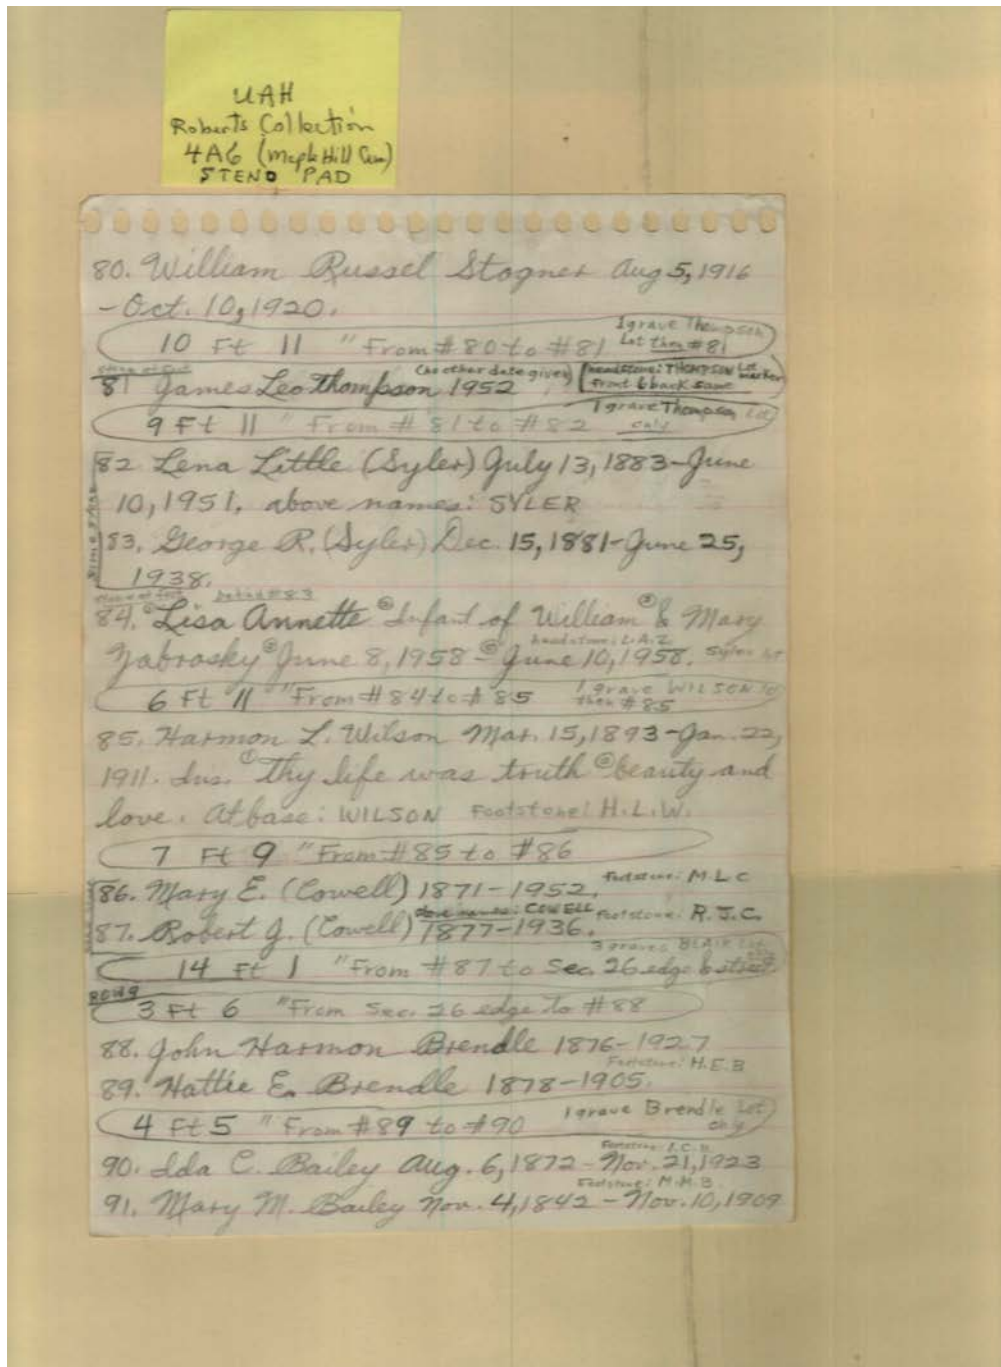 UAH
Roberts Collection
4A6 (Maple Hill Cem)
STENO PAD
80. William Russel Stogner Aug 5, 1916
- Oct. 10, 1920.
10 Ft 11 " From # 80 to # 81 1 grave Thompson
Lot then # 81
81 James Leo Thompson 1952 (no other date given) [headstone: THOMPSON Lot marker
front & back same
9 Ft 11 " From # 81 to # 82 1 grave Thompson Lot
only
82 Lena Little (Syler) July 13, 1883-June
10, 1951. above names: SYLER
83. George R. (Syler) Dec. 15, 1881-June 25,
1938.
behind #83
84. Lisa Annette ② Infant of William ③ & Mary
Zabrosky ④ June 8, 1958 - ⑤ June 10, 1958. Syler lot
headstone: L.A.Z.
6 Ft 11 " From # 84 to # 85 1 grave WILSON lot
then # 85
85. Harmon L. Wilson Mar. 15, 1893-Jan. 22,
1911. Ins. ① Thy life was truth ② beauty and
love. At base: WILSON Footstone: H.L.W.
7 Ft 9 " From # 85 to # 86
86. Mary E. (Cowell) 1871-1952. Footstone: M.L.C
above names: COWELL
87. Robert J. (Cowell) 1877-1936. Footstone: R.J.C.
3 graves BLAIR Lot
14 Ft 1 " From # 87 to Sec. 26 edge & street.
ROW 9
3 Ft 6 " From Sec. 26 edge to # 88
88. John Harmon Brendle 1876-1927
Footstone: H.E.B
89. Hattie E. Brendle 1878-1905.
4 Ft 5 " From # 89 to # 90 1 grave Brendle Lot
only
90. Ida C. Bailey Aug. 6, 1872 - Nov. 21, 1923
Footstone: M.M.B.
91. Mary M. Bailey Nov. 4, 1842 - Nov. 10, 1909